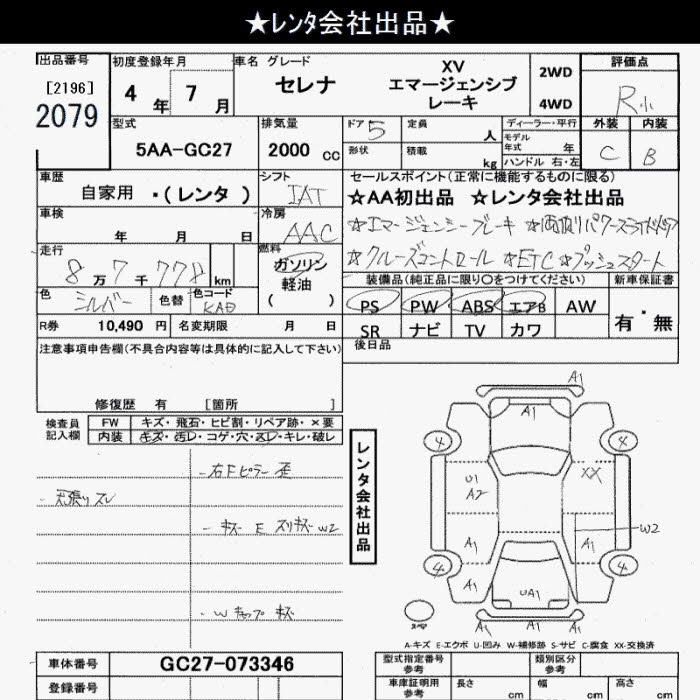 ★レンタ会社出品★
出品番号 初度登録年月 車名 グレード 評価点
[2196] 4年 7月 セレナ XV エマージェンシブレーキ 2WD 4WD R小
2079
型式 排気量 ドア 5 定員 人 ディーラー・平行 外装 内装
5AA-GC27 2000 cc 形状 積載 kg モデル年式 年 C B
ハンドル 右・左
車歴 シフト セールスポイント(正常に機能するものに限る)
自家用 ・(レンタ) IAT ☆AA初出品 ☆レンタ会社出品
車検 年 月 日 冷房 AAC ☆エマージェンシーブレーキ ☆両側パワースライドドア
走行 8万7千778 km 燃料 ガソリン 軽油 ( ) ☆クルーズコントロール ☆ETC ☆プッシュスタート
色 シルバー 色替 色コード KAD 装備品(純正品に限り○をつけてください) 新車保証書
PS PW ABS エアB AW 有・無
R券 10,490 円 名変期限 月 日 SR ナビ TV カワ
注意事項申告欄(不具合内容等は具体的に記入して下さい) 後日品
修復歴 有 [箇所 ]
検査員記入欄 FW キズ・飛石・ヒビ割・リペア跡・×要
内装 キズ・汚レ・コゲ・穴・スレ・キレ・破レ
- 右Fピラー 歪
- 天張りスレ
- キズ E スリキズ W2
- Wキャップ キズ
レンタ会社出品
A1
A1
4 4
U1 XX
A2
W2
A1 A1
4 A1 4
UA1
A1 A1 A1
スペア
A-キズ E-エクボ U-凹み W-補修跡 S-サビ C-腐食 XX-交換済
車体番号 GC27-073346 型式指定番号 参考 類別区分 参考
登録番号 車庫証明用 参考 長さ cm 幅 cm 高さ cm